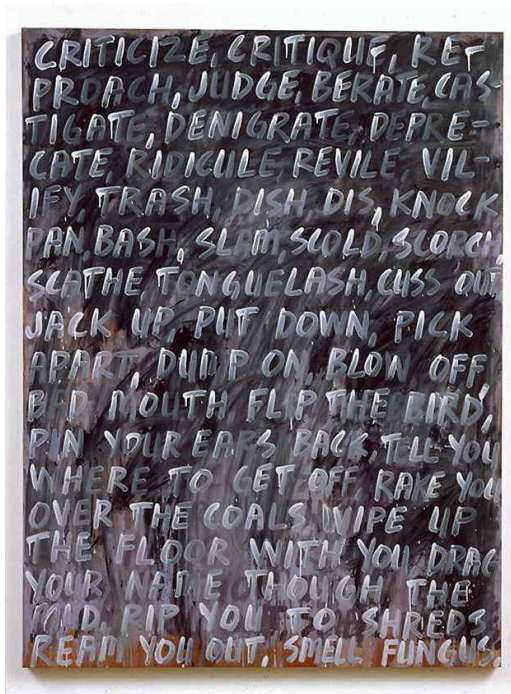 CRITICIZE, CRITIQUE, REP
PROACH, JUDGE, BERATE, CAS-
TIGATE, DENIGRATE, DEPRE-
CATE, RIDICULE, REVILE, VIL-
IFY, TRASH, DISH, DIS, KNOCK
PAN, BASH, SLAM, SCOLD, SCORCH,
SCATHE TONGUELASH, CUSS OUT
JACK UP PUT DOWN, PICK
APART, DUMP ON, BLOW OFF,
BAD MOUTH FLIP THE BIRD,
PIN YOUR EARS BACK, TELL YOU
WHERE TO GET OFF, RAKE YOU
OVER THE COALS, WIPE UP
THE FLOOR WITH YOU, DRAG
YOUR NAME THOUGH THE
MUD, RIP YOU TO SHREDS
REAM YOU OUT, SMELL FUNGUS.